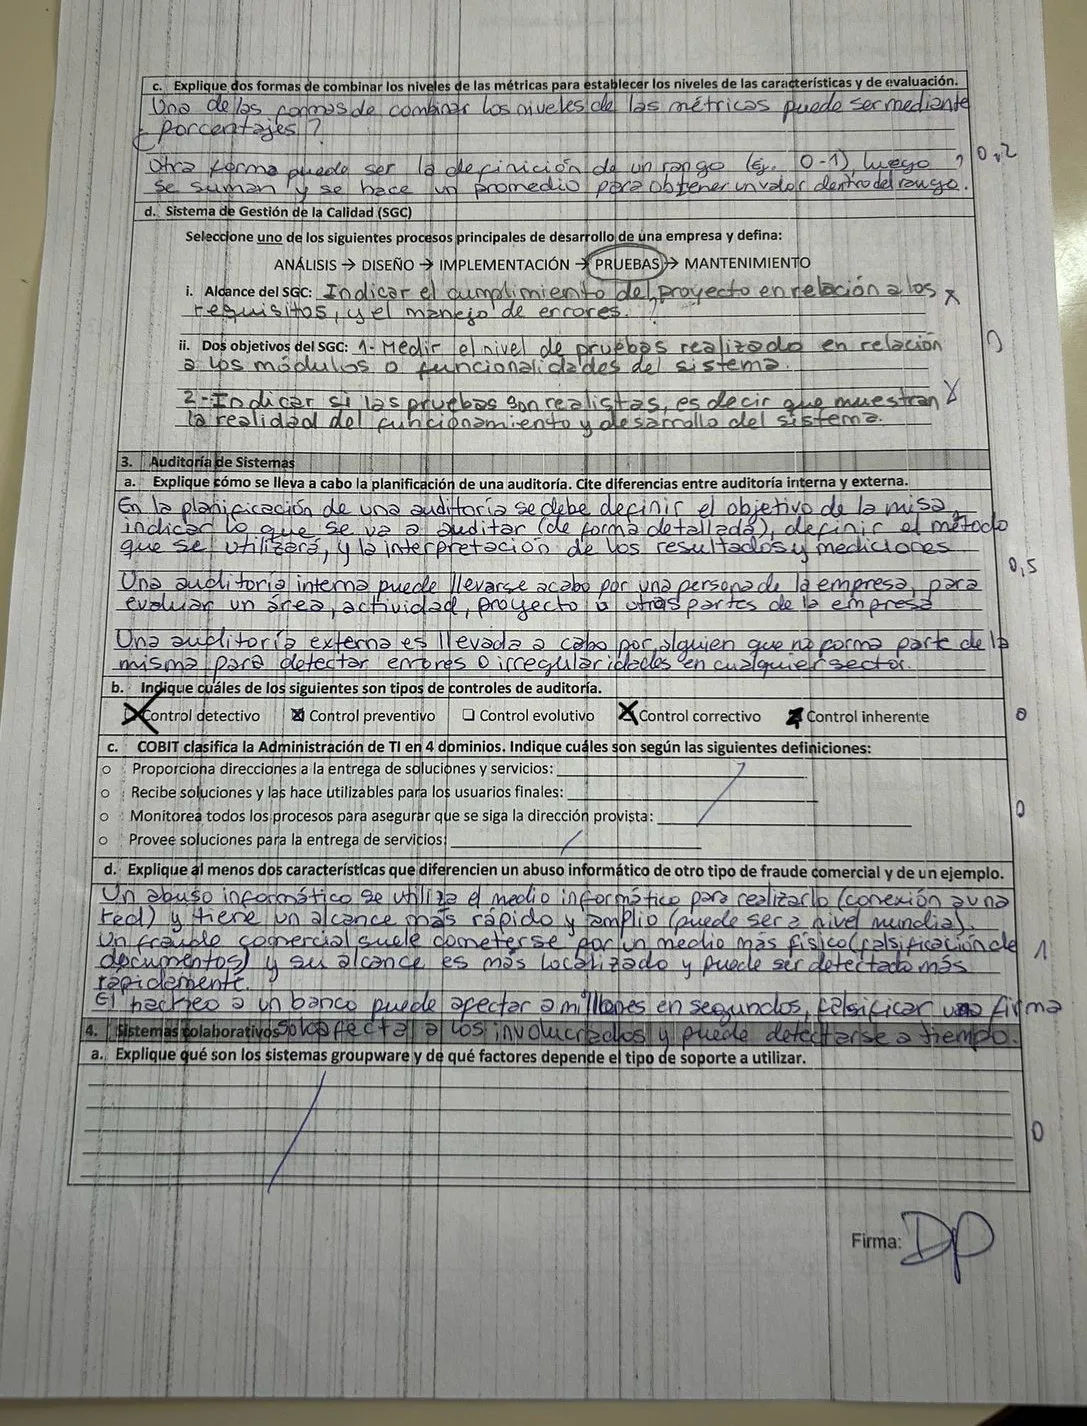 c. Explique dos formas de combinar los niveles de las métricas para establecer los niveles de las características y de evaluación.
Una de las formas de combinar los niveles de las métricas puede ser mediante
porcentajes ?
Otra forma puede ser la definición de un rango (Ej. 0-1), luego ? 0,2
se suman y se hace un promedio para obtener un valor dentro del rango.
d. Sistema de Gestión de la Calidad (SGC)
Seleccione uno de los siguientes procesos principales de desarrollo de una empresa y defina:
ANÁLISIS → DISEÑO → IMPLEMENTACIÓN → PRUEBAS → MANTENIMIENTO
i. Alcance del SGC: Indicar el cumplimiento del proyecto en relación a los x
requisitos, y el manejo de errores. ?
ii. Dos objetivos del SGC: 1- Medir el nivel de pruebas realizado en relación
a los módulos o funcionalidades del sistema.
2-Indicar si las pruebas son realistas, es decir que muestran
la realidad del funcionamiento y desarrollo del sistema.
3. Auditoría de Sistemas
a. Explique cómo se lleva a cabo la planificación de una auditoría. Cite diferencias entre auditoría interna y externa.
En la planificación de una auditoría se debe definir el objetivo de la misa,
indicar lo que se va a auditar (de forma detallada), definir el método
que se utilizará, y la interpretación de los resultados y mediciones
0,5
Una auditoría interna puede llevarse acabo por una persona de la empresa, para
evaluar un área, actividad, proyecto u otras partes de la empresa
Una auditoría externa es llevada a cabo por alguien que no forma parte de la
misma para detectar errores o irregularidades en cualquier sector.
b. Indique cuáles de los siguientes son tipos de controles de auditoría.
Control detectivo Control preventivo Control evolutivo Control correctivo Control inherente 0
c. COBIT clasifica la Administración de TI en 4 dominios. Indique cuáles son según las siguientes definiciones:
Proporciona direcciones a la entrega de soluciones y servicios:
Recibe soluciones y las hace utilizables para los usuarios finales: 0
Monitorea todos los procesos para asegurar que se siga la dirección provista:
Provee soluciones para la entrega de servicios:
d. Explique al menos dos características que diferencien un abuso informático de otro tipo de fraude comercial y de un ejemplo.
Un abuso informático se utiliza el medio informático para realizarlo (conexión a una
red) y tiene un alcance más rápido y amplio (puede ser a nivel mundial).
Un fraude comercial suele cometerse por un medio más físico (falsificación de 1
documentos) y su alcance es más localizado y puede ser detectado más
rápidamente.
El hackeo a un banco puede afectar a millones en segundos, falsificar una firma
4. Sistemas colaborativos solo afecta a los involucrados y puede detectarse a tiempo.
a. Explique qué son los sistemas groupware y de qué factores depende el tipo de soporte a utilizar.
0
Firma: DP